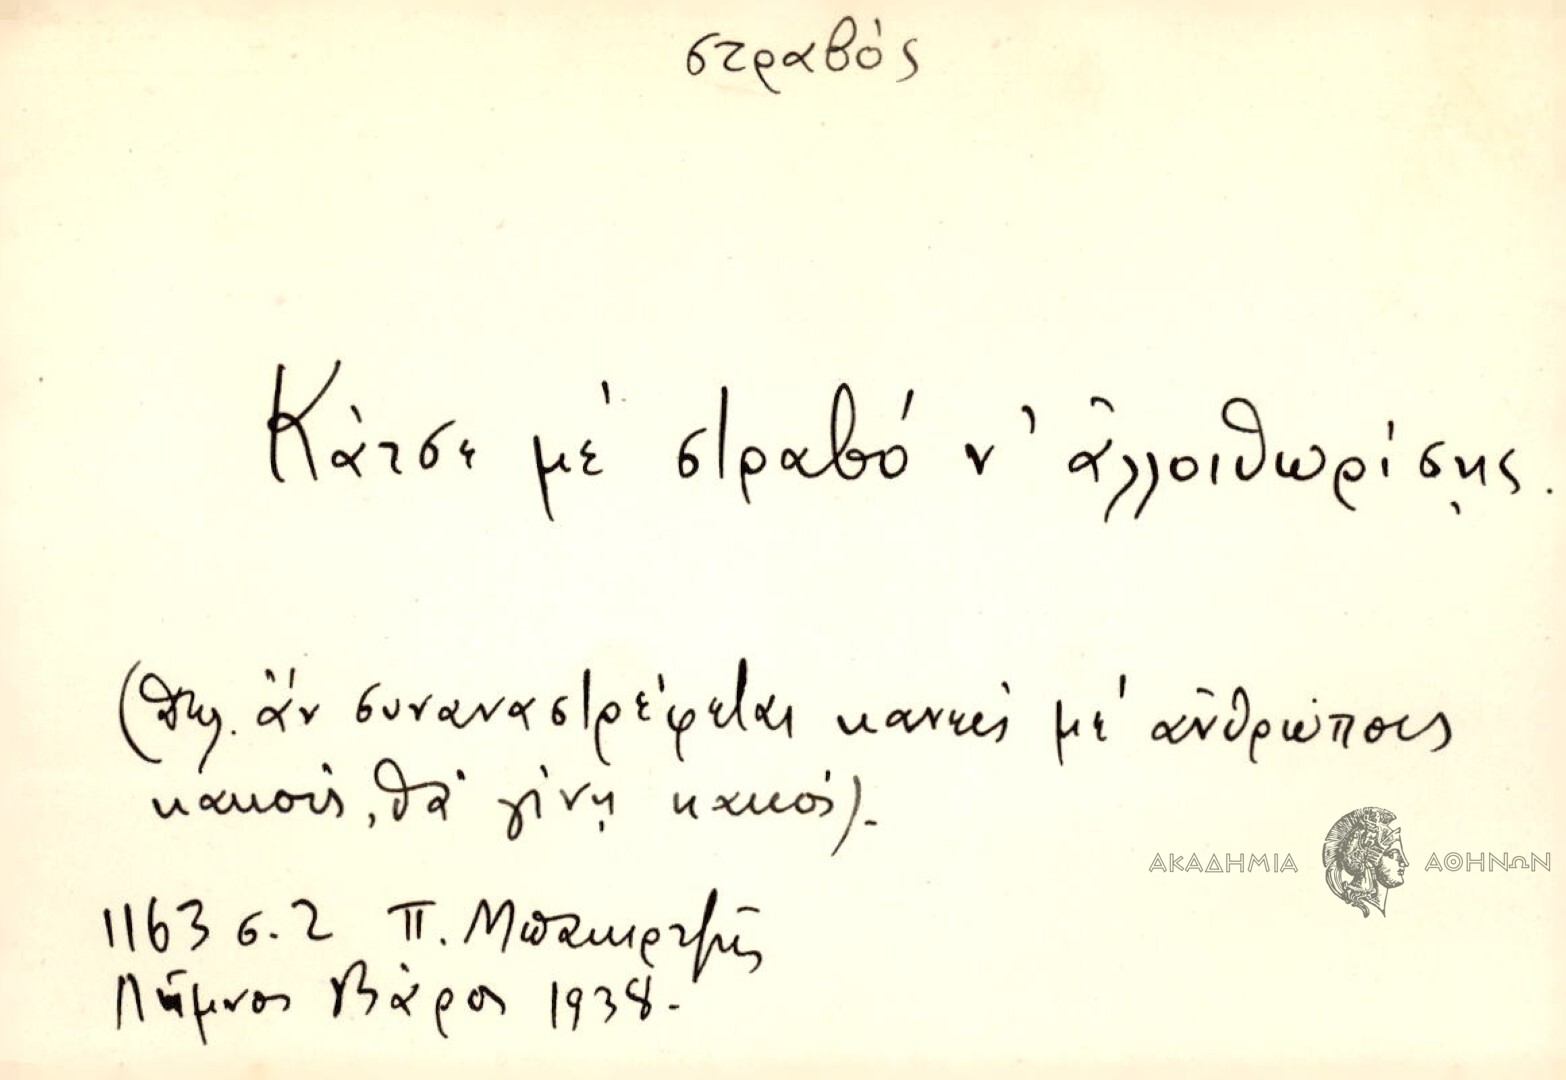 στραβός
Κάτσε μὲ στραβό ν' ἀλλοιθωρίσῃς.
(δηλ. ἄν συναναστρέφεται κανείς μέ ἀνθρώπους
κακούς, θά γίνῃ κακός).
1163 σ. 2 Π. Μπακιρτζῆς
Λῆμνος Βάρος 1938.
ΑΚΑΔΗΜΙΑ ΑΘΗΝΩΝ